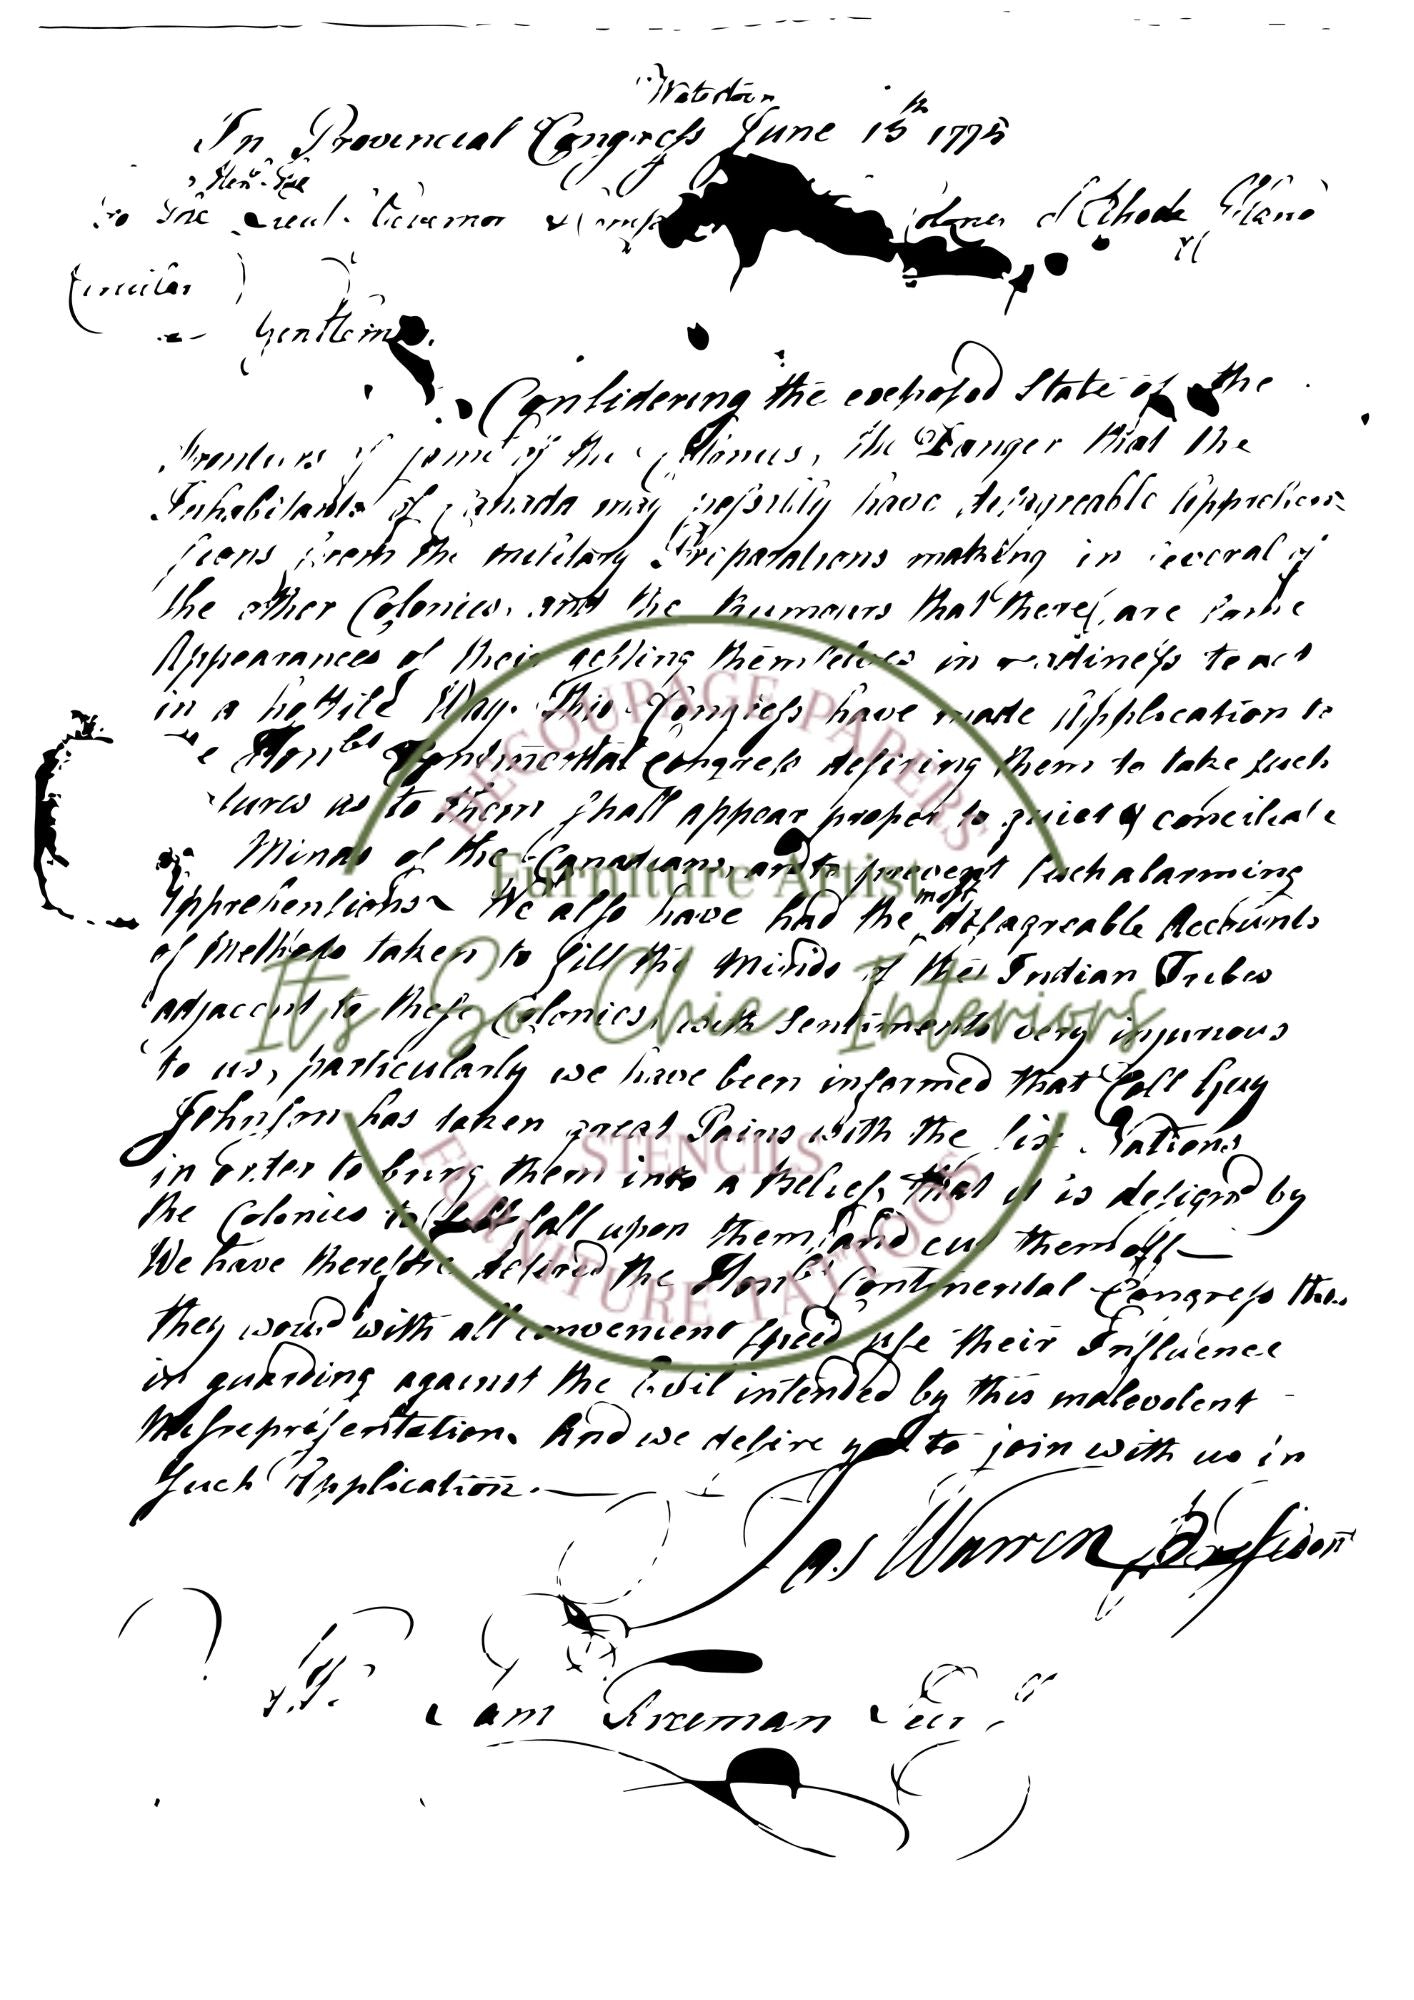 Watertown
In Provincial Congress June 13th 1775
Gentlemen.
Considering the exposed State of the
Frontiers of some of the Colonies, the Danger that the
Inhabitants of Canada may possibly have disagreable Apprehen=
sions from the military Preparations making in several of
the other Colonies, and the Rumours that there are some
Appearances of their getting themselves in readiness to act
in a hostile Way. This Congress have made Application to
e Honble Continental Congress desiring them to take such
sures as to them shall appear proper to quiet & conciliate
Minds of the Canadians, and to prevent such alarming
Apprehensions We also have had the most disagreable Accounts
of Methods taken to fill the Minds of the Indian Tribes
adjacent to these Colonies, with Sentiments very injurious
to us, particularly we have been informed that Coll Guy
Johnson has taken great Pains with the Six Nations
in order to bring them into a Belief, that it is designd by
the Colonies to fall upon them, and cut them off
We have therefore desired the Honbl Continental Congress
they would with all convenient Speed use their Influence
in guarding against the Evil intended by this malevolent
Misrepresentation. And we desire you to join with us in
Such Application.
Jas Warren President
Sam Freeman Secr
DECOUPAGE PAPERS
Furniture Artist
Its So Chic Interiors
STENCILS
FURNITURE TATTOOS